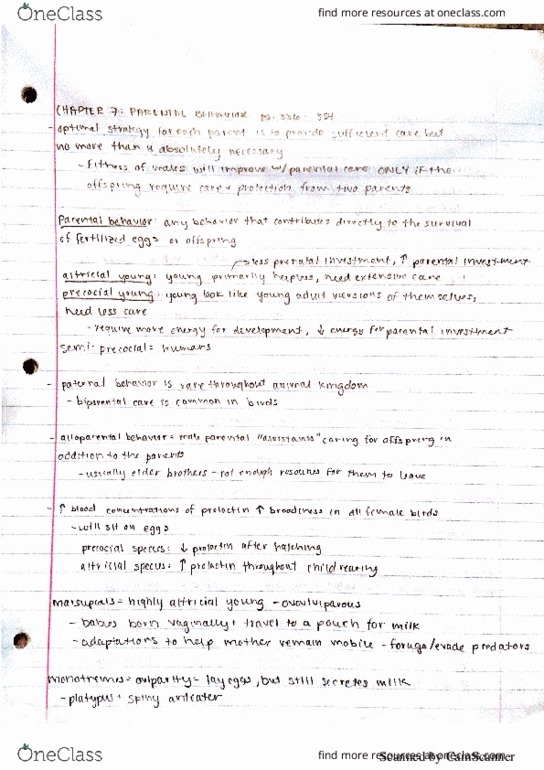 OneClass
find more resources at oneclass.com
CHAPTER 7: PARENTAL BEHAVIOR pg.
- optimal strategy for each parent is to provide sufficient care but
no more than is absolutely necessary
- Fitness of males will improve w/ parental care ONLY if the
offspring require care + protection from two parents
Parental behavior: any behavior that contributes directly to the survival
of fertilized eggs or offspring
less prenatal investment, ↑ parental investment
altricial young: young primarily helpless, need extensive care
precocial young: young look like young adult versions of themselves,
need less care
- require more energy for development, ↓ energy for parental investment
semi-precocial = humans
- paternal behavior is rare throughout animal kingdom
- biparental care is common in birds
- alloparental behavior = male parental "assistants" caring for offspring in
addition to the parents
- usually elder brothers - not enough resources for them to leave
- ↑ blood concentrations of prolactin ↑ broodiness in all female birds
- will sit on eggs
precocial species: ↓ prolactin after hatching
altricial species: ↑ prolactin throughout child rearing
marsupials = highly altricial young - ovoviviparous
- babies born vaginally + travel to a pouch for milk
- adaptations to help mother remain mobile - forage/evade predators
monotremes = oviparity = lay eggs, but still secretes milk
- platypus + spiny anteater
OneClass
find more resources at oneclass.com
Scanned by CamScanner